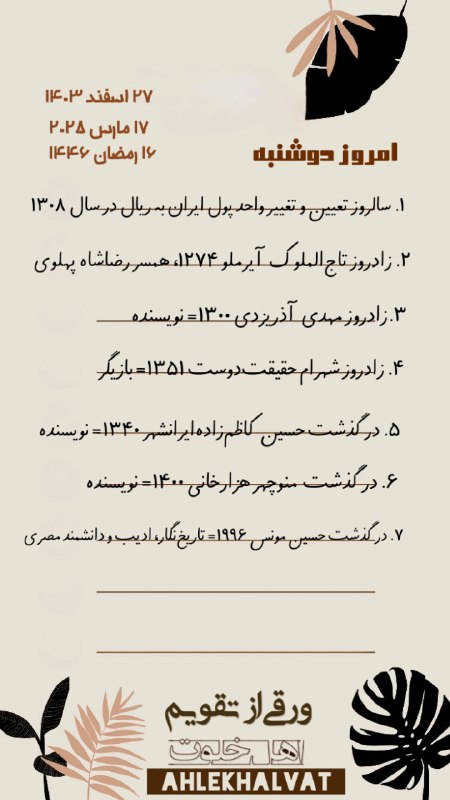 ۲۷ اسفند ۱۴۰۳
۱۷ مارس ۲۰۲۵
۱۶ رمضان ۱۴۴۶
امروز دوشنبه
۱. سالروز تعیین و تغییر واحد پول ایران به ریال در سال ۱۳۰۸
۲. زادروز تاج‌الملوک آیرملو ۱۲۷۴، همسر رضاشاه پهلوی
۳. زادروز مهدی آذریزدی ۱۳۰۰= نویسنده
۴. زادروز شهرام حقیقت‌دوست ۱۳۵۱= بازیگر
۵. درگذشت حسین کاظم‌زاده ایرانشهر ۱۳۴۰= نویسنده
۶. درگذشت منوچهر هزارخانی ۱۴۰۰= نویسنده
۷. درگذشت حسین مونس ۱۹۹۶= تاریخ‌نگار، ادیب و دانشمند مصری
ورقی از تقویم
اهل خلوت
AHLEKHALVAT